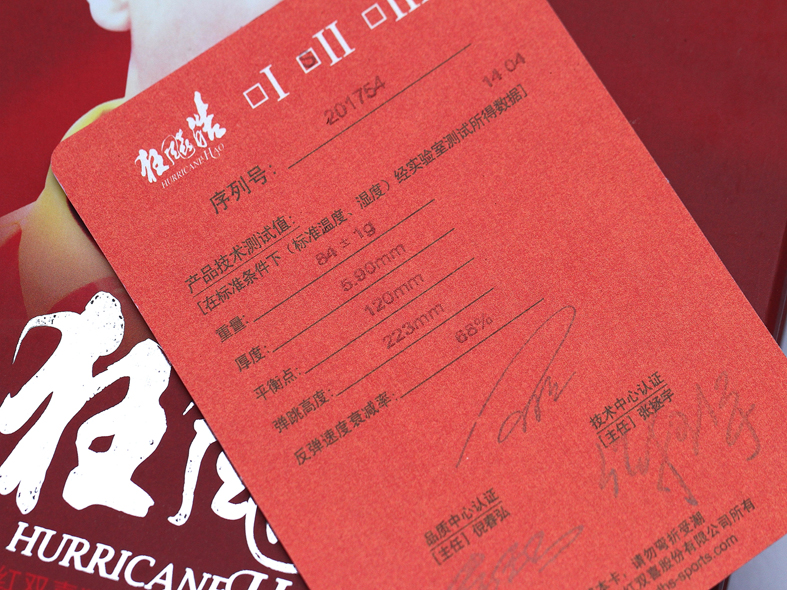 □I ☑II □III
狂飚皓
HURRICANE HAO
序列号: 201754 14 04
产品技术测试值:
[在标准条件下（标准温度、湿度）经实验室测试所得数据]
重量: 84 ± 1g
厚度: 5.90mm
平衡点: 120mm
弹跳高度: 223mm
反弹速度衰减率: 68%
技术中心认证
[主任] 张拯宇
品质中心认证
[主任] 倪春弘
本卡: 请勿弯折受潮
红双喜股份有限公司所有
dhs-sports.com
狂飚
HURRICANE H
红双喜